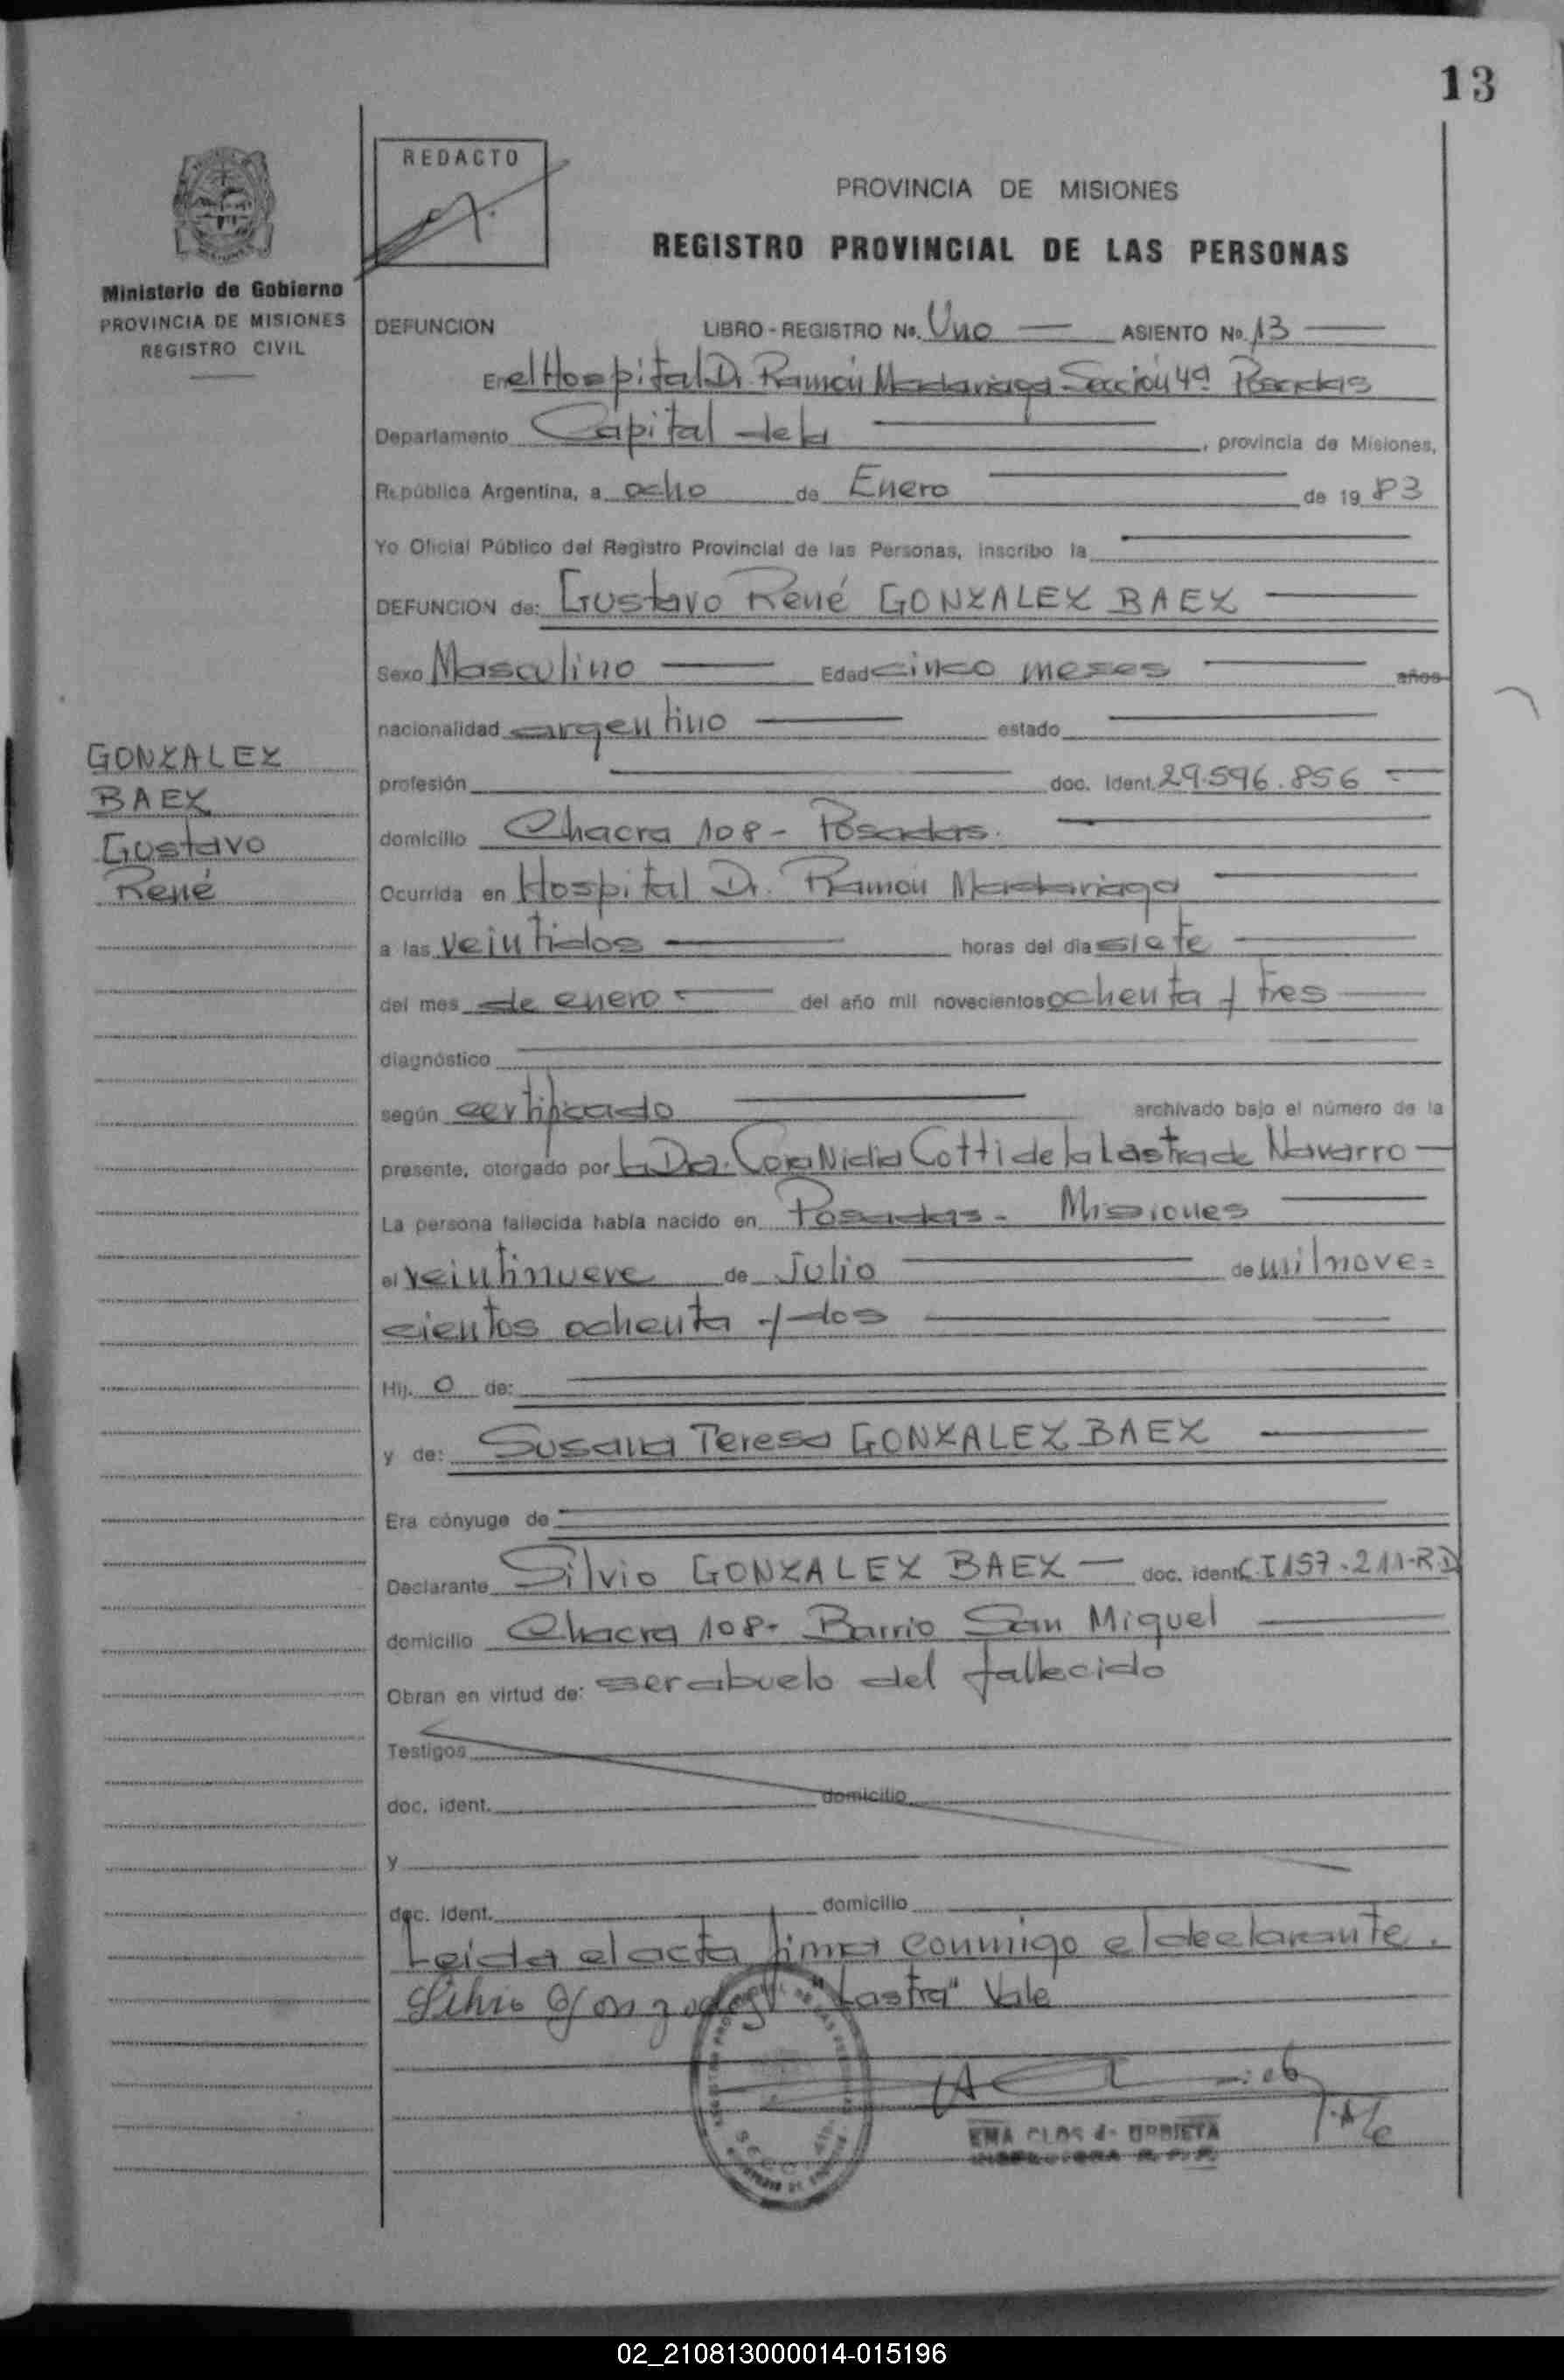 13
REDACTO
PROVINCIA DE MISIONES
REGISTRO PROVINCIAL DE LAS PERSONAS
Ministerio de Gobierno
PROVINCIA DE MISIONES
REGISTRO CIVIL
DEFUNCION LIBRO - REGISTRO No. Uno ASIENTO No. 13
En el Hospital Dr. Ramón Madariaga Sección 4a Posadas
Departamento Capital de la , provincia de Misiones,
República Argentina, a ocho de Enero de 19 83
Yo Oficial Público del Registro Provincial de las Personas, inscribo la
DEFUNCION de: Gustavo René GONZALEZ BAEZ
Sexo Masculino Edad cinco meses años
nacionalidad argentino estado
GONZALEZ
BAEZ
Gustavo
René
profesión doc. Ident. 29.596.856
domicilio Chacra 108 - Posadas.
Ocurrida en Hospital Dr. Ramón Madariaga
a las veintidos horas del día siete
del mes de enero del año mil novecientos ochenta y tres
diagnóstico
según certificado archivado bajo el número de la
presente, otorgado por la Dra. Cora Nidia Cotti de la Lastra de Navarro
La persona fallecida había nacido en Posadas - Misiones
el veintinueve de Julio de mil nove=
cientos ochenta y dos
Hij. o de:
y de: Susana Teresa GONZALEZ BAEZ
Era cónyuge de
Declarante Silvio GONZALEZ BAEZ doc. ident. C.I 157.211-R.D
domicilio Chacra 108- Barrio San Miguel
Obran en virtud de: ser abuelo del fallecido
Testigos
doc. ident. domicilio
y
doc. ident. domicilio
Leida el acta firma conmigo el declarante.
"Lastra" Vale
EMA CLOS de URRIETA
INSPECTORA R. P. P.
02_210813000014-015196